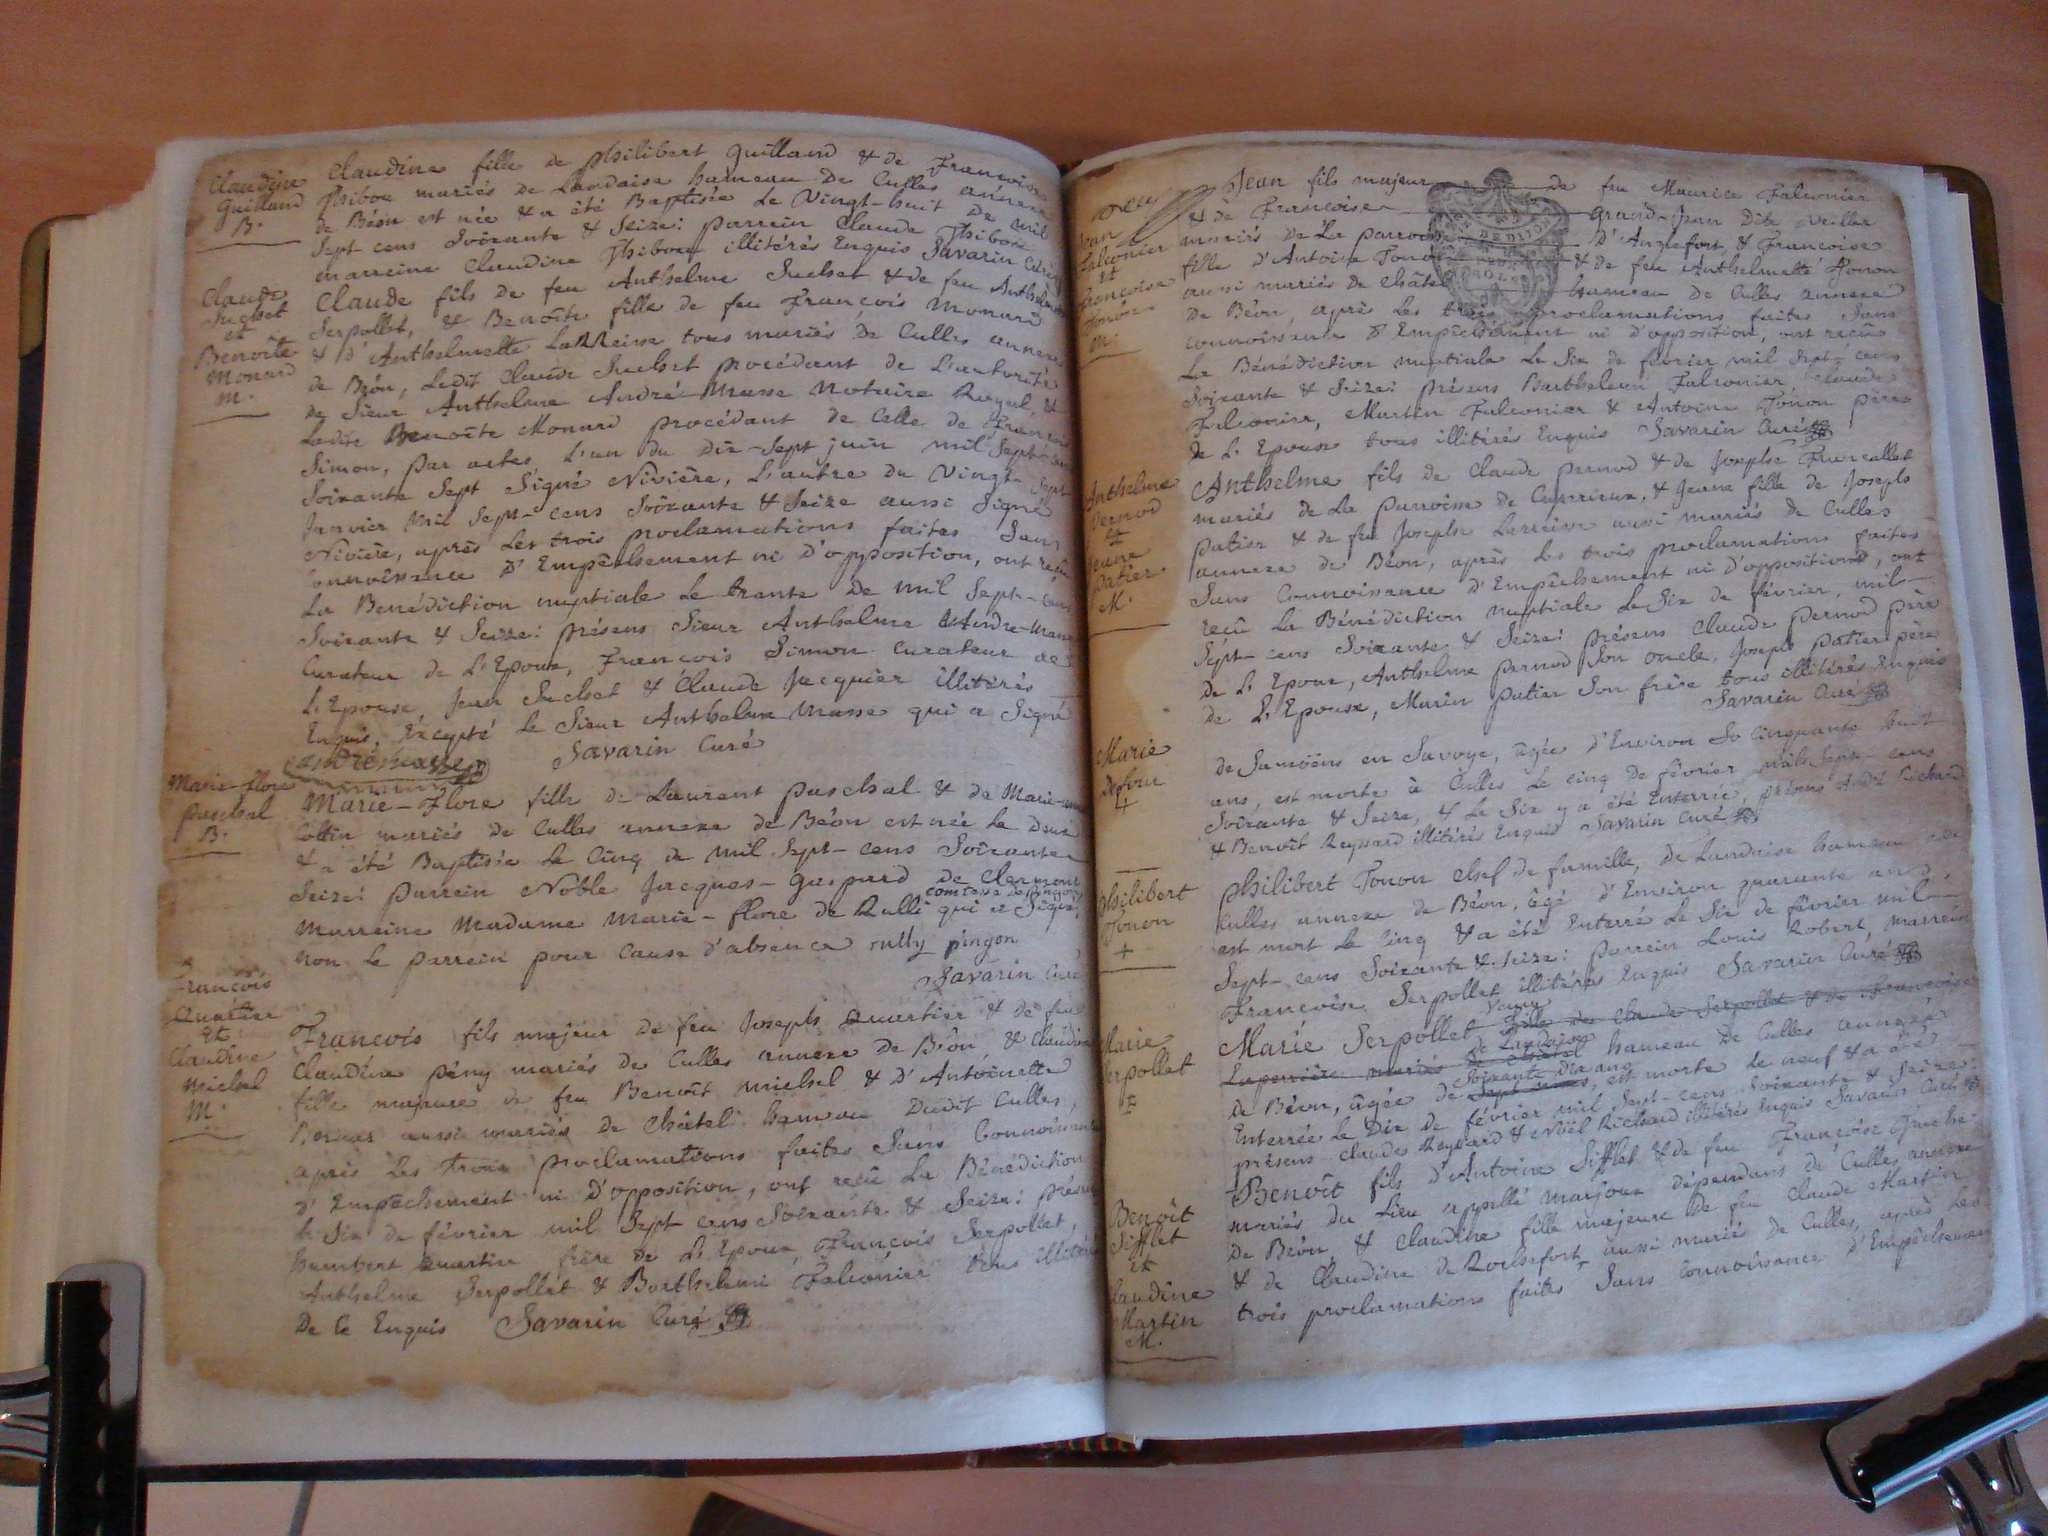 Claudine
Guilland
B.
Claudine fille de philibert Guilland & de Francoise
Thibou mariés de Landaise hameau De Culles annexe
de Béon est née & a été Baptisée Le Vingt-huit De mil
Sept cens Soixante & Seize: parrein Claude Thibou
marreine Claudine Thibou illitérés Enquis Savarin Curé
Claude
Suchet
et
Benoîte
Monard
M.
Claude fils de feu Anthelme Suchet & de feu Anthelmette
Serpollet, & Benoîte fille de feu François Monard
& d'Anthelmette LaReine tous mariés de Culles annexe
de Béon, Ledit Claude Suchet procédant de L'autorité
de Sieur Anthelme André-Masse Notaire Royal, &
Ladite Benoîte Monard procédant de Celle de François
Simon, par actes L'un du Dix-Sept juin mil Sept-cens
Soixante Sept Signé Nivière, L'autre du Vingt-Sept
Janvier mil Sept-cens Soixante & Seize aussi Signé
Nivière, après Les trois proclamations faites Sans
Connoissance D'Empêchement ni D'opposition, ont reçû
La Benédiction nuptiale Le trente De mil Sept-cens
Soixante & Seize: présens Sieur Anthelme André-Masse
Curateur de L'Epoux, François Simon Curateur de
L'Epouse, Jean Suchet & Claude Jacquier illitérés
Enquis, Excepté Le Sieur Anthelme Masse qui a Signé
André masse Savarin Curé
Marie-flore
paschal
B.
Marie-Flore fille de Laurent paschal & de Marie-anne
Cottin mariés de Culles annexe de Béon est née Le Deux
& a été Baptisée Le Cinq de mil Sept-cens Soixante &
Seize: parrein Noble Jacques-Gaspard de Clermont
comtesse de pingon
Marreine Madame Marie-flore de Rulli qui a Signé,
non Le parrein pour Cause d'absence rully pingon
Savarin Curé
François
Quartier
Et
Claudine
Michel
M.
François fils majeur de feu Joseph Quartier & de feu
Claudine pény mariés de Culles annexe de Béon, & Claudine
fille majeure de feu Benoît Michel & D'Antoinette
aussi mariés de Châtel hameau Dudit Culles,
après Les trois proclamations faites Sans Connoissance
D'Empêchement ni D'opposition, ont reçû La Bénédiction
le Six de février mil Sept-cens Soixante & Seize: présens
humbert quartier frère de L'Epoux, François Serpollet,
Anthelme Serpollet & Barthelemi Falconier tous illitérés
De Ce Enquis Savarin Curé
Jean
Falconier
et
Francoise
Tonon
M.
Jean fils majeur de feu Maurice Falconier
& de Francoise Grand-Jean Dite Veillet
mariés de La parroisse D'Anglefort, & Francoise
fille d'Antoine Tonon & de feu Anthelmette Tonon
aussi mariés de Châtel hameau de Culles annexe
de Béon, après Les trois proclamations faites Sans
connoissance D'Empêchement ni d'opposition, ont reçû
La Bénédiction nuptiale Le Six de février mil Sept-cens
Soixante & Seize: présens Barthelemi Falconier, Claude
Falconier, Martin Falconier & Antoine Tonon père
de L'Epouse tous illitérés Enquis Savarin Curé
Anthelme
pernod
et
Jeanne
patier
M.
Anthelme fils de Claude pernod & de Josephe Fracallet
mariés de La parroisse de Cuzerieux, & Jeanne fille de Joseph
patier & de feu Josephe Larreine aussi mariés de Culles
annexe de Béon, après Les trois proclamations faites
Sans Connoissance d'Empêchement ni d'opposition, ont
reçû La Bénédiction nuptiale Le Six de février, mil
Sept-cens Soixante & Seize: présens Claude pernod père
de L'Epoux, Anthelme pernod Son oncle, Joseph patier père
de L'Epouse, Marin patier Son frère tous illitérés Enquis
Savarin Curé
Marie
+
de Samoëns en Savoye, âgée d'Environ cinquante huit
ans, est morte à Culles Le cinq de février mil Sept-cens
Soixante & Seize, & Le Six y a été Enterrée, présens André Richard
& Benoît Reyvard illitérés Enquis Savarin Curé
philibert
Tonon
+
philibert Tonon chef de famille, de Landaise hameau de
Culles annexe de Béon, âgé d'Environ quarante ans
est mort Le Cinq & a été Enterré Le Six de février mil
Sept-cens Soixante & Seize: parrein Louis Robert, marreine
Francoise Serpollet illitérés Enquis Savarin Curé
Marie
Serpollet
+
veuve
Marie Serpollet fille de Claude Serpollet & de Francoise
de Landaise
Lapenière mariés de Châtel hameau de Culles annexe
Soixante Dix ans
de Béon, âgée de Sept ans, est morte le neuf & a été
Enterrée Le Dix de février mil Sept-cens Soixante & Seize:
présens Claude Reyvard & Noël Richard illitérés Enquis Savarin Curé
Benoît
Sifflet
et
Claudine
Martin
M.
Benoît fils d'Antoine Sifflet & de feu Françoise
mariés du Lieu appellé marjoux dépendans de Culles annexe
De Béon, & Claudine fille majeure De feu Claude Martin
& de Claudine de Rochefort aussi mariés de Culles, après Les
trois proclamations faites Sans connoissance d'Empêchement